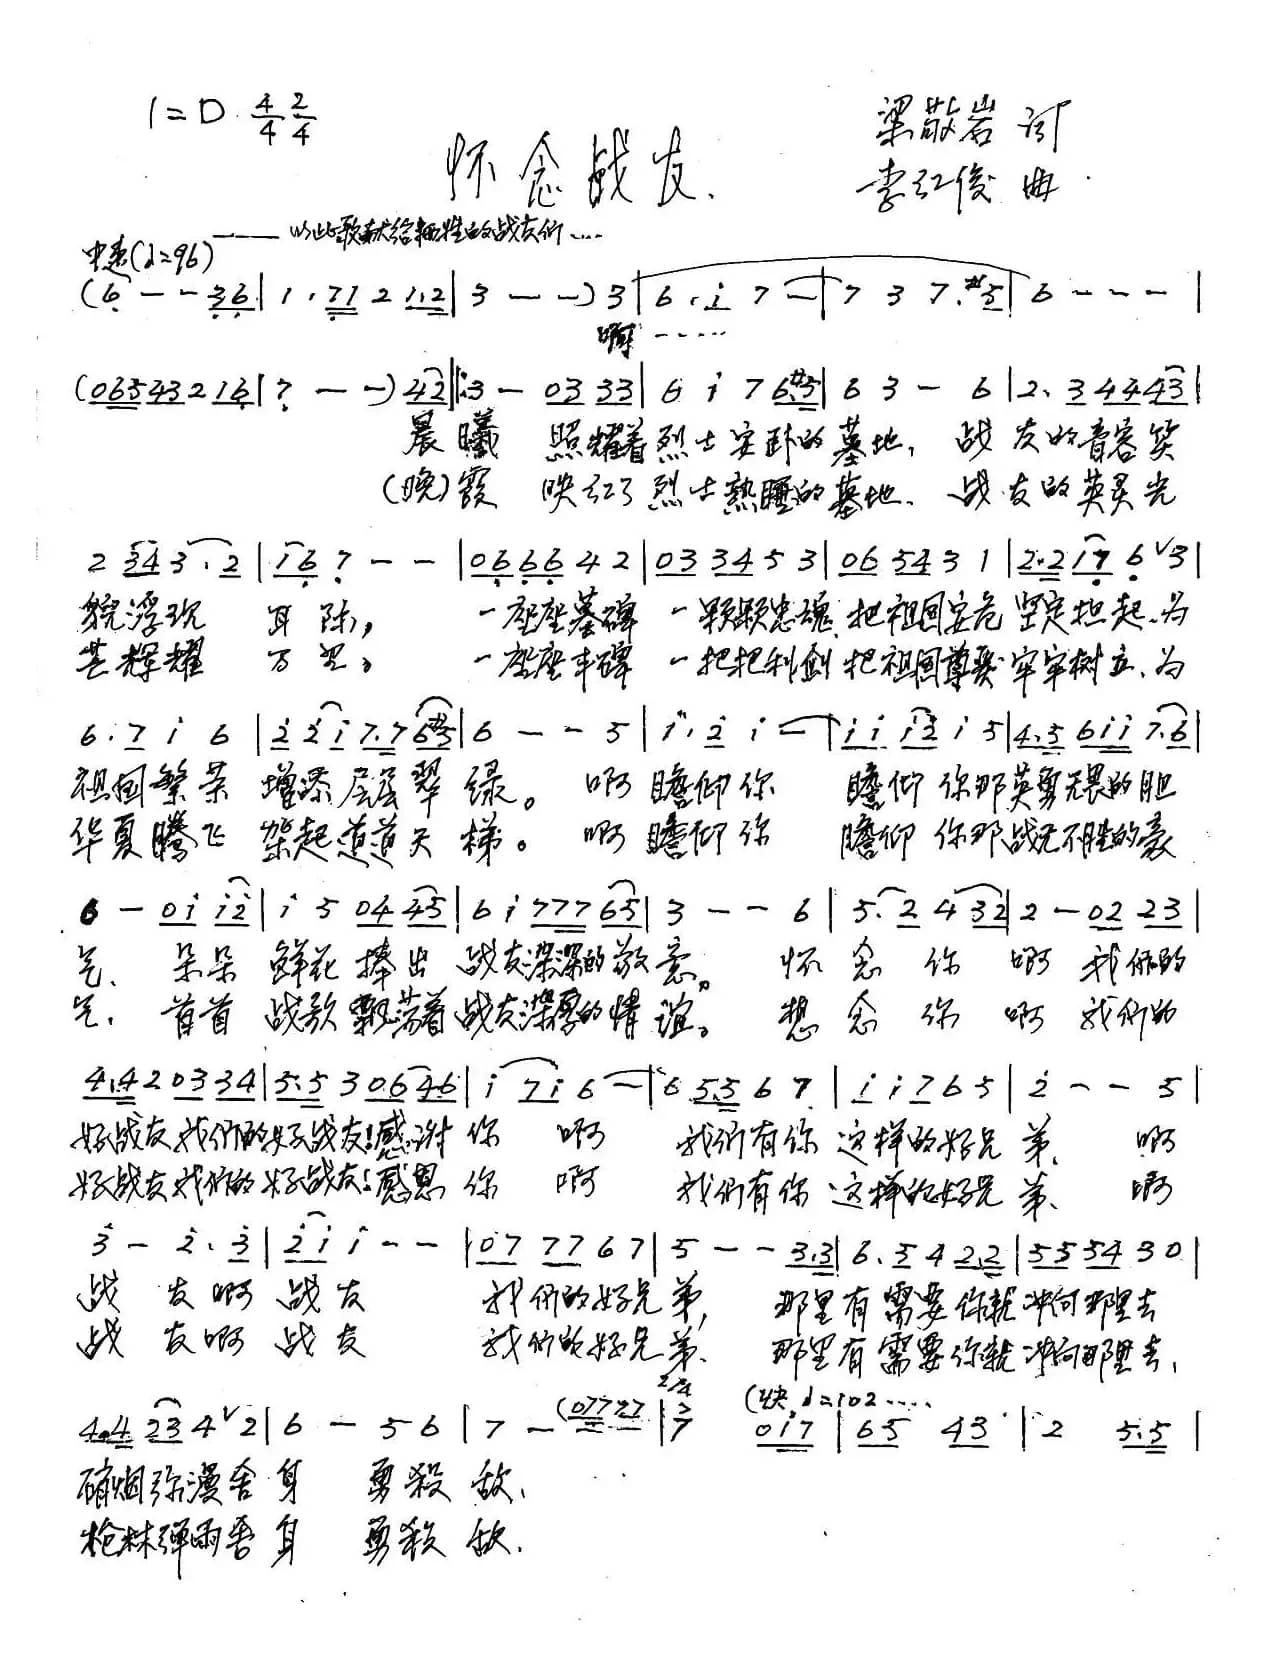 1=D 4/4 2/4
梁敬岩 词
怀念战友
李红俊 曲
——以此歌献给牺牲的战友们……
中速(♩=96)
(6 — — 36 | 1 · 71 2 1·2 | 3 — —) 3 | 6 · i 7 — | 7 3 7·#5 | 6 — — — |
啊……
(0654321 6 | 7 — —) 42 ‖: 3 — 03 33 | 6 i 7 6·#5 | 6 3 — 6 | 2·3 4443 |
晨曦 照耀着烈士安卧的墓地，战友的音容笑
(晚)霞 映红了烈士熟睡的墓地、战友的英灵光
2 34 3·2 | 16 7 — — | 06 66 4 2 | 03 34 5 3 | 06 54 3 1 | 2·2 17 6 ˅3 |
貌浮现 耳际，一座座墓碑 一颗颗忠魂 把祖国安危 坚定担起、为
芒辉耀 万里。一座座丰碑 一把把利剑 把祖国尊严 牢牢树立、为
6·7 i 6 | 2 2i 7·7 6#5 | 6 — — 5 | i·2 i — | i i i2 i 5 | 4·5 6ii 7·6 |
祖国繁荣 增添层层翠绿。啊 瞻仰你 瞻仰你那英勇无畏的胆
华夏腾飞 架起道道天梯。啊 瞻仰你 瞻仰你那战无不胜的豪
6 — 0i i2 | i 5 04 45 | 6 i 777 65 | 3 — — 6 | 5·2 4 32 | 2 — 02 23 |
气、朵朵 鲜花 捧出 战友深深的敬意。怀念你 啊 我们的
气、首首 战歌 飘荡着 战友深厚的情谊。想念你 啊 我们的
4·4 2 03 34 | 5·5 3 06 46 | i 7i 6 — | 6 5·5 6 7 | i i 7 6 5 | 2 — — 5 |
好战友我们的好战友！感谢你 啊 我们有你 这样的好兄弟、啊
好战友我们的好战友！感恩你 啊 我们有你 这样的好兄弟、啊
3 — 2·3 | 2i i — — | 07 77 6 7 | 5 — — 3·3 | 6·5 4 2·2 | 55 54 3 0 |
战友啊 战友 我们的好兄弟，那里有需要你就冲向那里去
战友啊 战友 我们的好兄弟、那里有需要你就冲向那里去，
2/4 (快♩=102……
4·4 23 4 ˅2 | 6 — 5 6 | 7 — (0777 77 | 7 0i7 | 65 43 | 2 5·5 |
硝烟弥漫舍身 勇殺敌、
枪林弹雨舍身 勇殺敌.